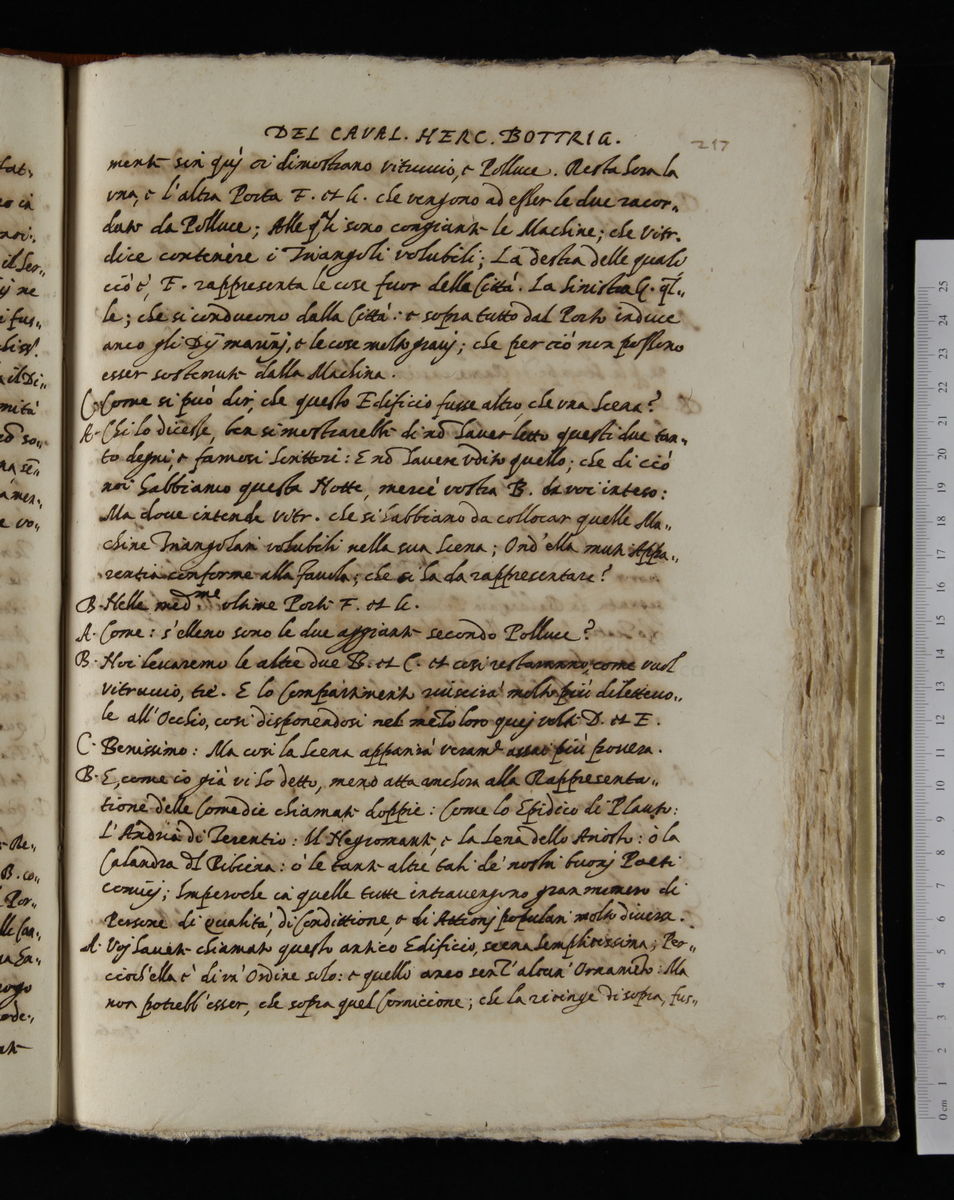 DEL CAVAL. HERC. BOTTRIG. 217
mente sin quì ci dimostrano vitruuio, e Polluce. Resta hora la
vna, e l'altra Porta F. et G. che vengono ad esser le due racor„
date da Polluce; Alle q̃li sono congiante le Machine; che vitr.
dice contenère i Triangoli volubili; La destra delle quali
ciò è, F. rappresenta le cose fuor della Città. La sinistra G. q̃l„
le; che si conducono dalla Città: e sopra tutto dal Porto induce
anco gli Dij marinj, e le cose molto grauj; che per ciò non possono
esser sostenute dalla Machina.
C. Come si può dir, che questo Edificio fusse altro, che vna Scena?
A. Chi lo dicesse, ben si mostrarebbe di nō hauer letto questi due tan„
to degni, e famosi scrittori: E nō hauere vdito quello; che di ciò
noi habbiamo questa Notte, mercè vostra B. da voi inteso:
Ma doue intende vitr. che si habbiano da collocar quelle Ma„
chine Triangolari volubili nella sua Scena; Ond'ella muti Appa„
rentia conforme alla fauola; che si ha da rappresentare?
B. Nelle med.me vltime Porte F. et G.
A. Come: s'elleno sono le due aggiante secondo Polluce?
B. Noi leuaremo le altre due B. et C. et così restaranno, come vuol
vitruuio, trè. E lo Compartimento riuscirà molto più diletteuo„
le all'Occhio, così disponendosi nel mezo loro quej volti D. et E.
C. Benissimo: Ma così la Scena apparirà veram.te assai più pouera.
B. E, come io già vi ho detto, meno atta anchora alla Rappresenta„
tione delle Comedie chiamate doppie: Come lo Epidico di Plauto:
L'Andria di Terentio: Il Negromante, e la Lena dello Ariosto: ò la
Calandra dl Bibiena: ò le tante altre tali de' nostri buonj Poeti
comicj; Imperoche in quelle tutte intravengono gran numero di
Persone di qualità, di Condittione, e di Attionj popolari molto diuersa.
A. Voj hauete chiamato questo antico Edificio, scena semplicissima; Per„
cioch'ella è di vn' Ordine solo: e quello anco senz'alcun' Ornamēto: Ma
non potrebb'esser, che sopra quel Cornicione; che la recinge di sopra, fus„